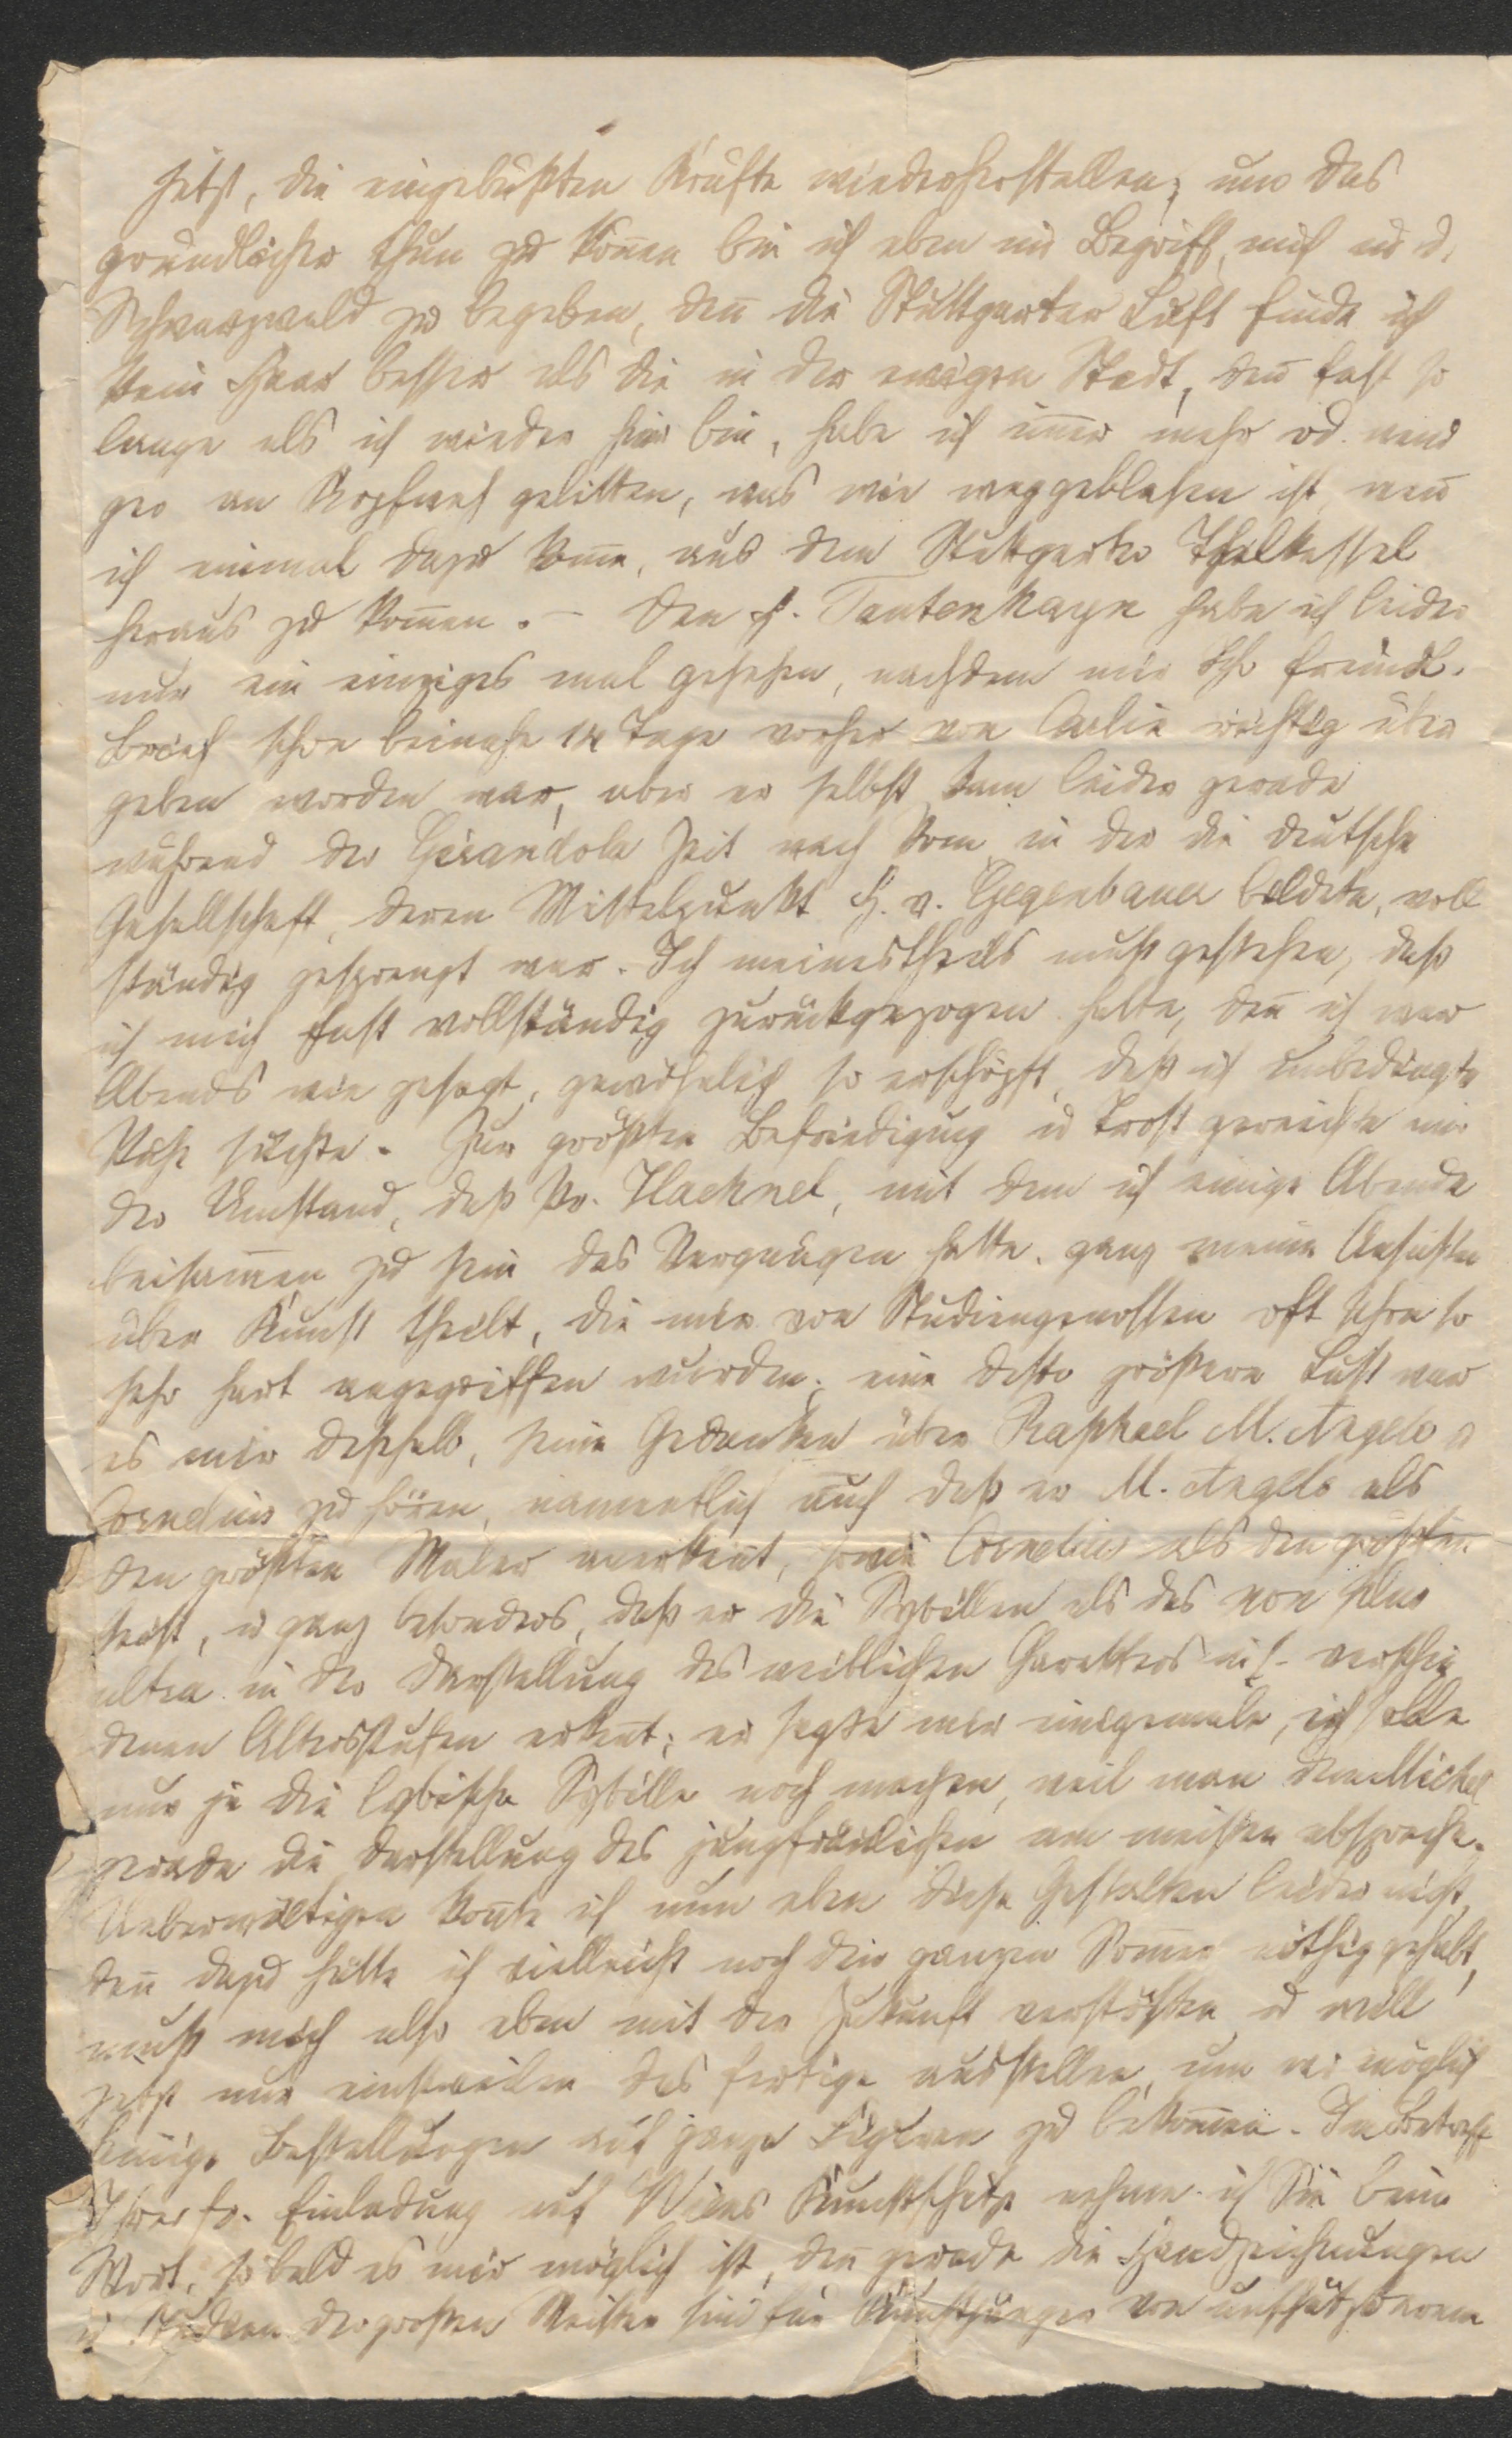 jetzt, die eingebüßten Kräfte wiederherstellen; um das
gründlicher thun zu können bin ich eben im Begriff, mich in d.
Schwarzwald zu begeben, den̄ die Stuttgarter Luft finde ich
kein Haar besser als die in der ewigen Stadt, den̄ fast so
lange als ich wieder hier bin, habe ich im̄er mehr od. weni
ger an Kopfweh gelitten, was wie weggeblasen ist, wen̄
ich einmal dazu kom̄e, aus dem Stuttgarter Thalkessel
heraus zu kom̄en. – Den H. Tautenhayn habe ich leider
nur ein einziges mal gesehen, nachdem mir Ihr freundl.
Brief schon beinahe 14 Tage vorher von richtig über
geben worden war, aber er selbst kam leider gerade
während der Girandola Zeit nach Rom, in der die deutsche
Gesellschaft, deren Mittelpunkt H. v. Gegenbauer bildete, voll
ständig gesprengt war. Ich meinestheils muß gestehen, daß
ich mich fast vollständig zurückgezogen hatte, den̄ ich war
Abends wie gesagt, gewöhnlich so erschöpft, daß ich unbedingte
Ruhe suchte. Zur größten Befriedigung u Trost gereichte mir
der Umstand, daß Pr. Haehnel, mit dem ich einige Abende
beisam̄en zu sein das Vergnügen hatte, ganz meine Ansichten
über Kunst theilt, die mir von Studiengenossen oft schon so
sehr hart angegriffen wurden; eine desto größere Lust war
es mir deßhalb, seine Gedanken über Raphael M. Angelo u
Cornelius zu hören, namentlich auch daß er M. Angelo als
den größten Maler anerken̄t, sowie Cornelius als den größten
, u ganz besonders, daß er die Sybillen als das non plus
ultra in der Darstellung des weiblichen Charakters in s. verschie
denen Altersstufen erken̄t; er sagte mir einigemale, ich solle
nur ja die lybische Sybille noch machen, weil man dem Michel
gerade die Darstellung des jungfräulichen am meisten abspreche.
Ueberwältigen kon̄te ich nun eben diese Gestalten leider nicht,
den̄ dazu hätte ich vielleicht noch den ganzen Som̄er nöthig gehabt,
muß mich also eben mit der Zukunft vertrösten u will
jetzt nur einstweilen das fertige ausstellen, um wo möglich
einige Bestellungen auf ganze Figuren zu bekom̄en. In Betreff
Ihrer fr. Einladung auf Wiens Kunstschätze nehme ich Sie beim
Wort, sobald es mir möglich ist, den̄ gerade die Handzeichnungen
u Studien der großen Meister sind für Kunstjünger von unschätzbarem